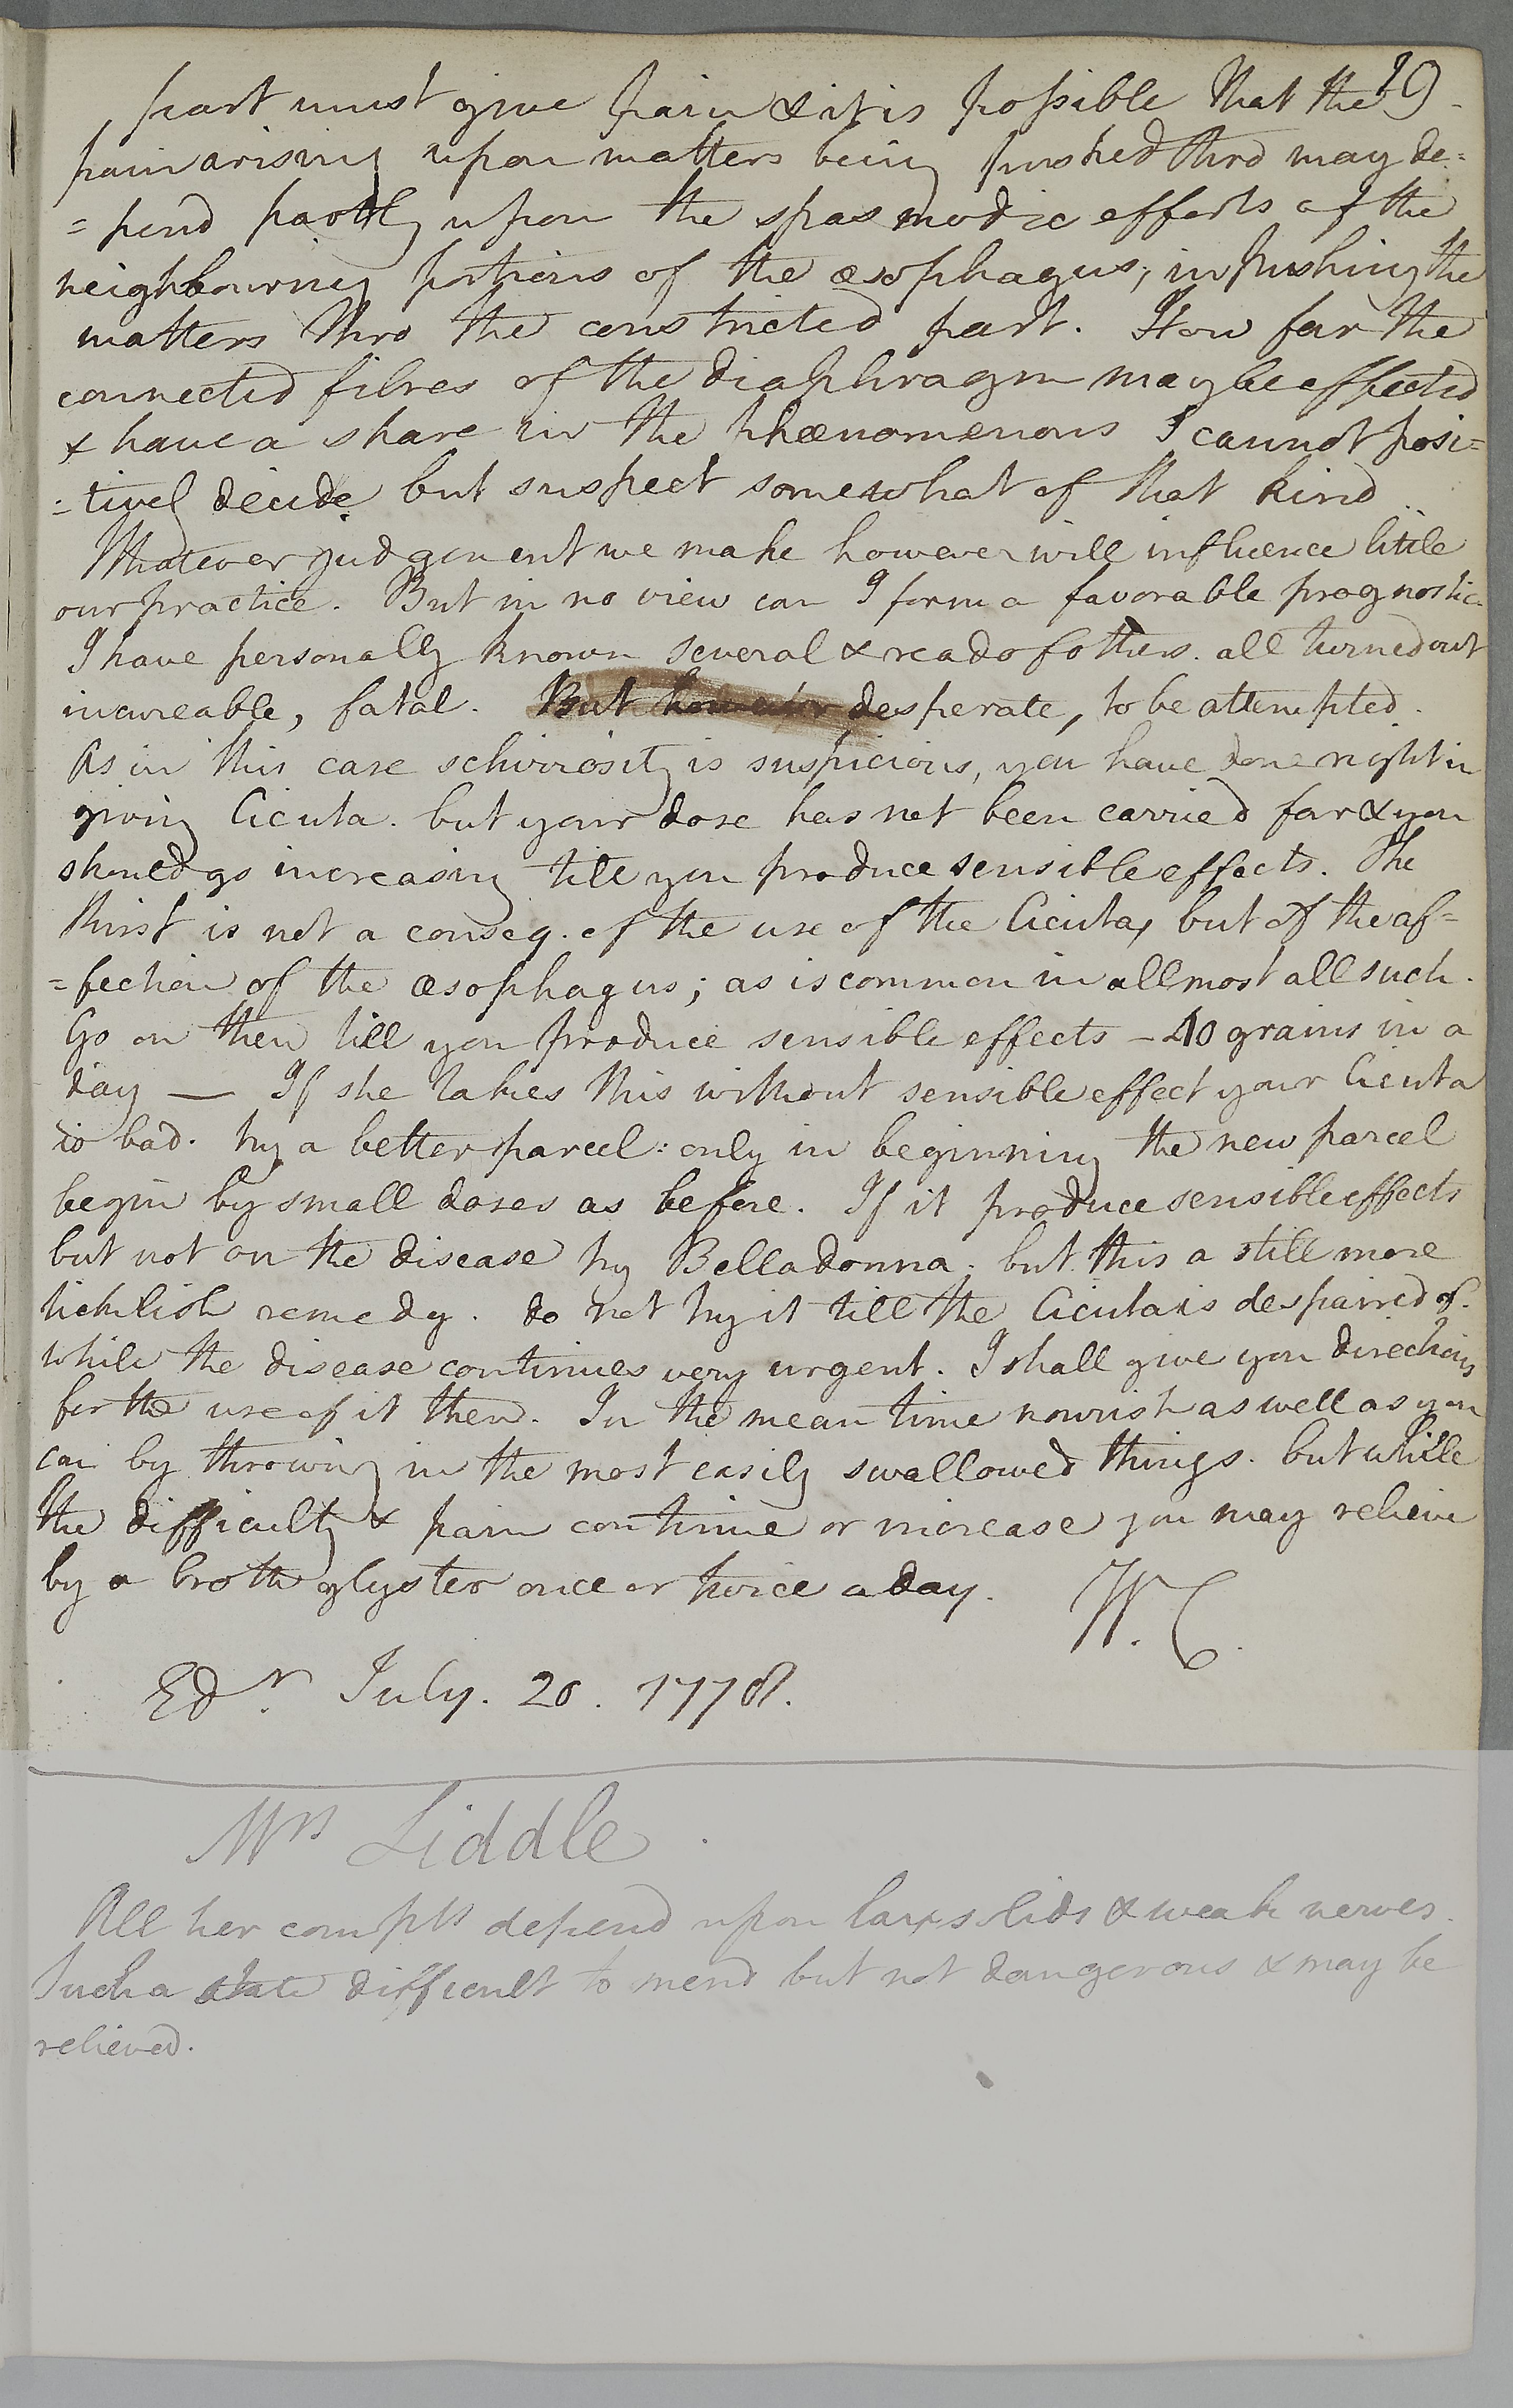 part must give pain & it is possible that the 19
pain arising upon matters being pushed thro may de=
=pend partly upon the spasmodic efforts of the
neighbouring portions of the œsophagus, in pushing the
matters thro the constricted part. How far the
connected fibres of the diaphragm may be affected
& have a share in the phænomenons I cannot posi=
=tively decide but suspect somewhat of that kind
Whatever judgment we make however will influence little
our practice. But in no view can I form a favorable prognostic
I have personally known several & read of others. all turned out
incureable, fatal. But however desperate, to be attempted.
As in this case schirrosity is suspicious, you have done right in
giving Cicuta. but your dose has not been carried far & you
should go increasing till you produce sensible effects. The
thirst is not a conseq. of the use of the Cicuta, but of the af=
=fection of the œsophagus; as is common in allmost all such.
Go on then till you produce sensible effects – 40 grains in a
day — If she takes this without sensible effect your Cicuta
is bad. try a better parcel: only in beginning the new parcel
begin by small doses as before. If it produce sensible effects
but not on the disease try Belladonna. but this a still more
ticklish remedy. do not try it till the Cicuta is despaired of.
while the disease continues very urgent. I shall give you directions
for the use of it then. In the mean time nourish as well as you
can by throwing in the most easily swallowed things. but while
the difficulty & pain continue or increase you may relieve
by a broth glyster once or twice a day. W. C.
Edr. July. 20. 1778.
Mrs Liddle.
All her compts depend upon lax solids & weak nerves.
Such a state difficult to mend but not dangerous & may be
relieved.